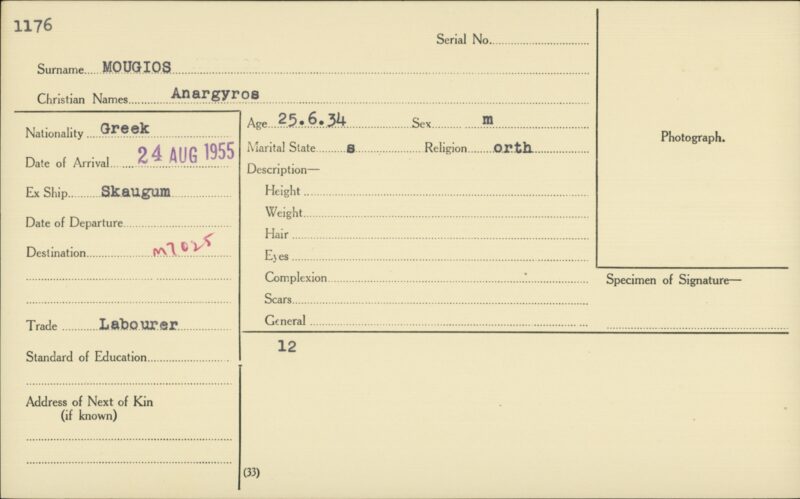 1176
Serial No.
Surname MOUGIOS
Christian Names Anargyros
Nationality Greek
Date of Arrival 24 AUG 1955
Ex Ship Skaugum
Date of Departure
Destination M7025
Trade Labourer
Standard of Education
Address of Next of Kin
(if known)
Age 25.6.34 Sex m
Marital State s Religion orth
Description—
Height
Weight
Hair
Eyes
Complexion
Scars
General
12
(33)
Photograph.
Specimen of Signature—